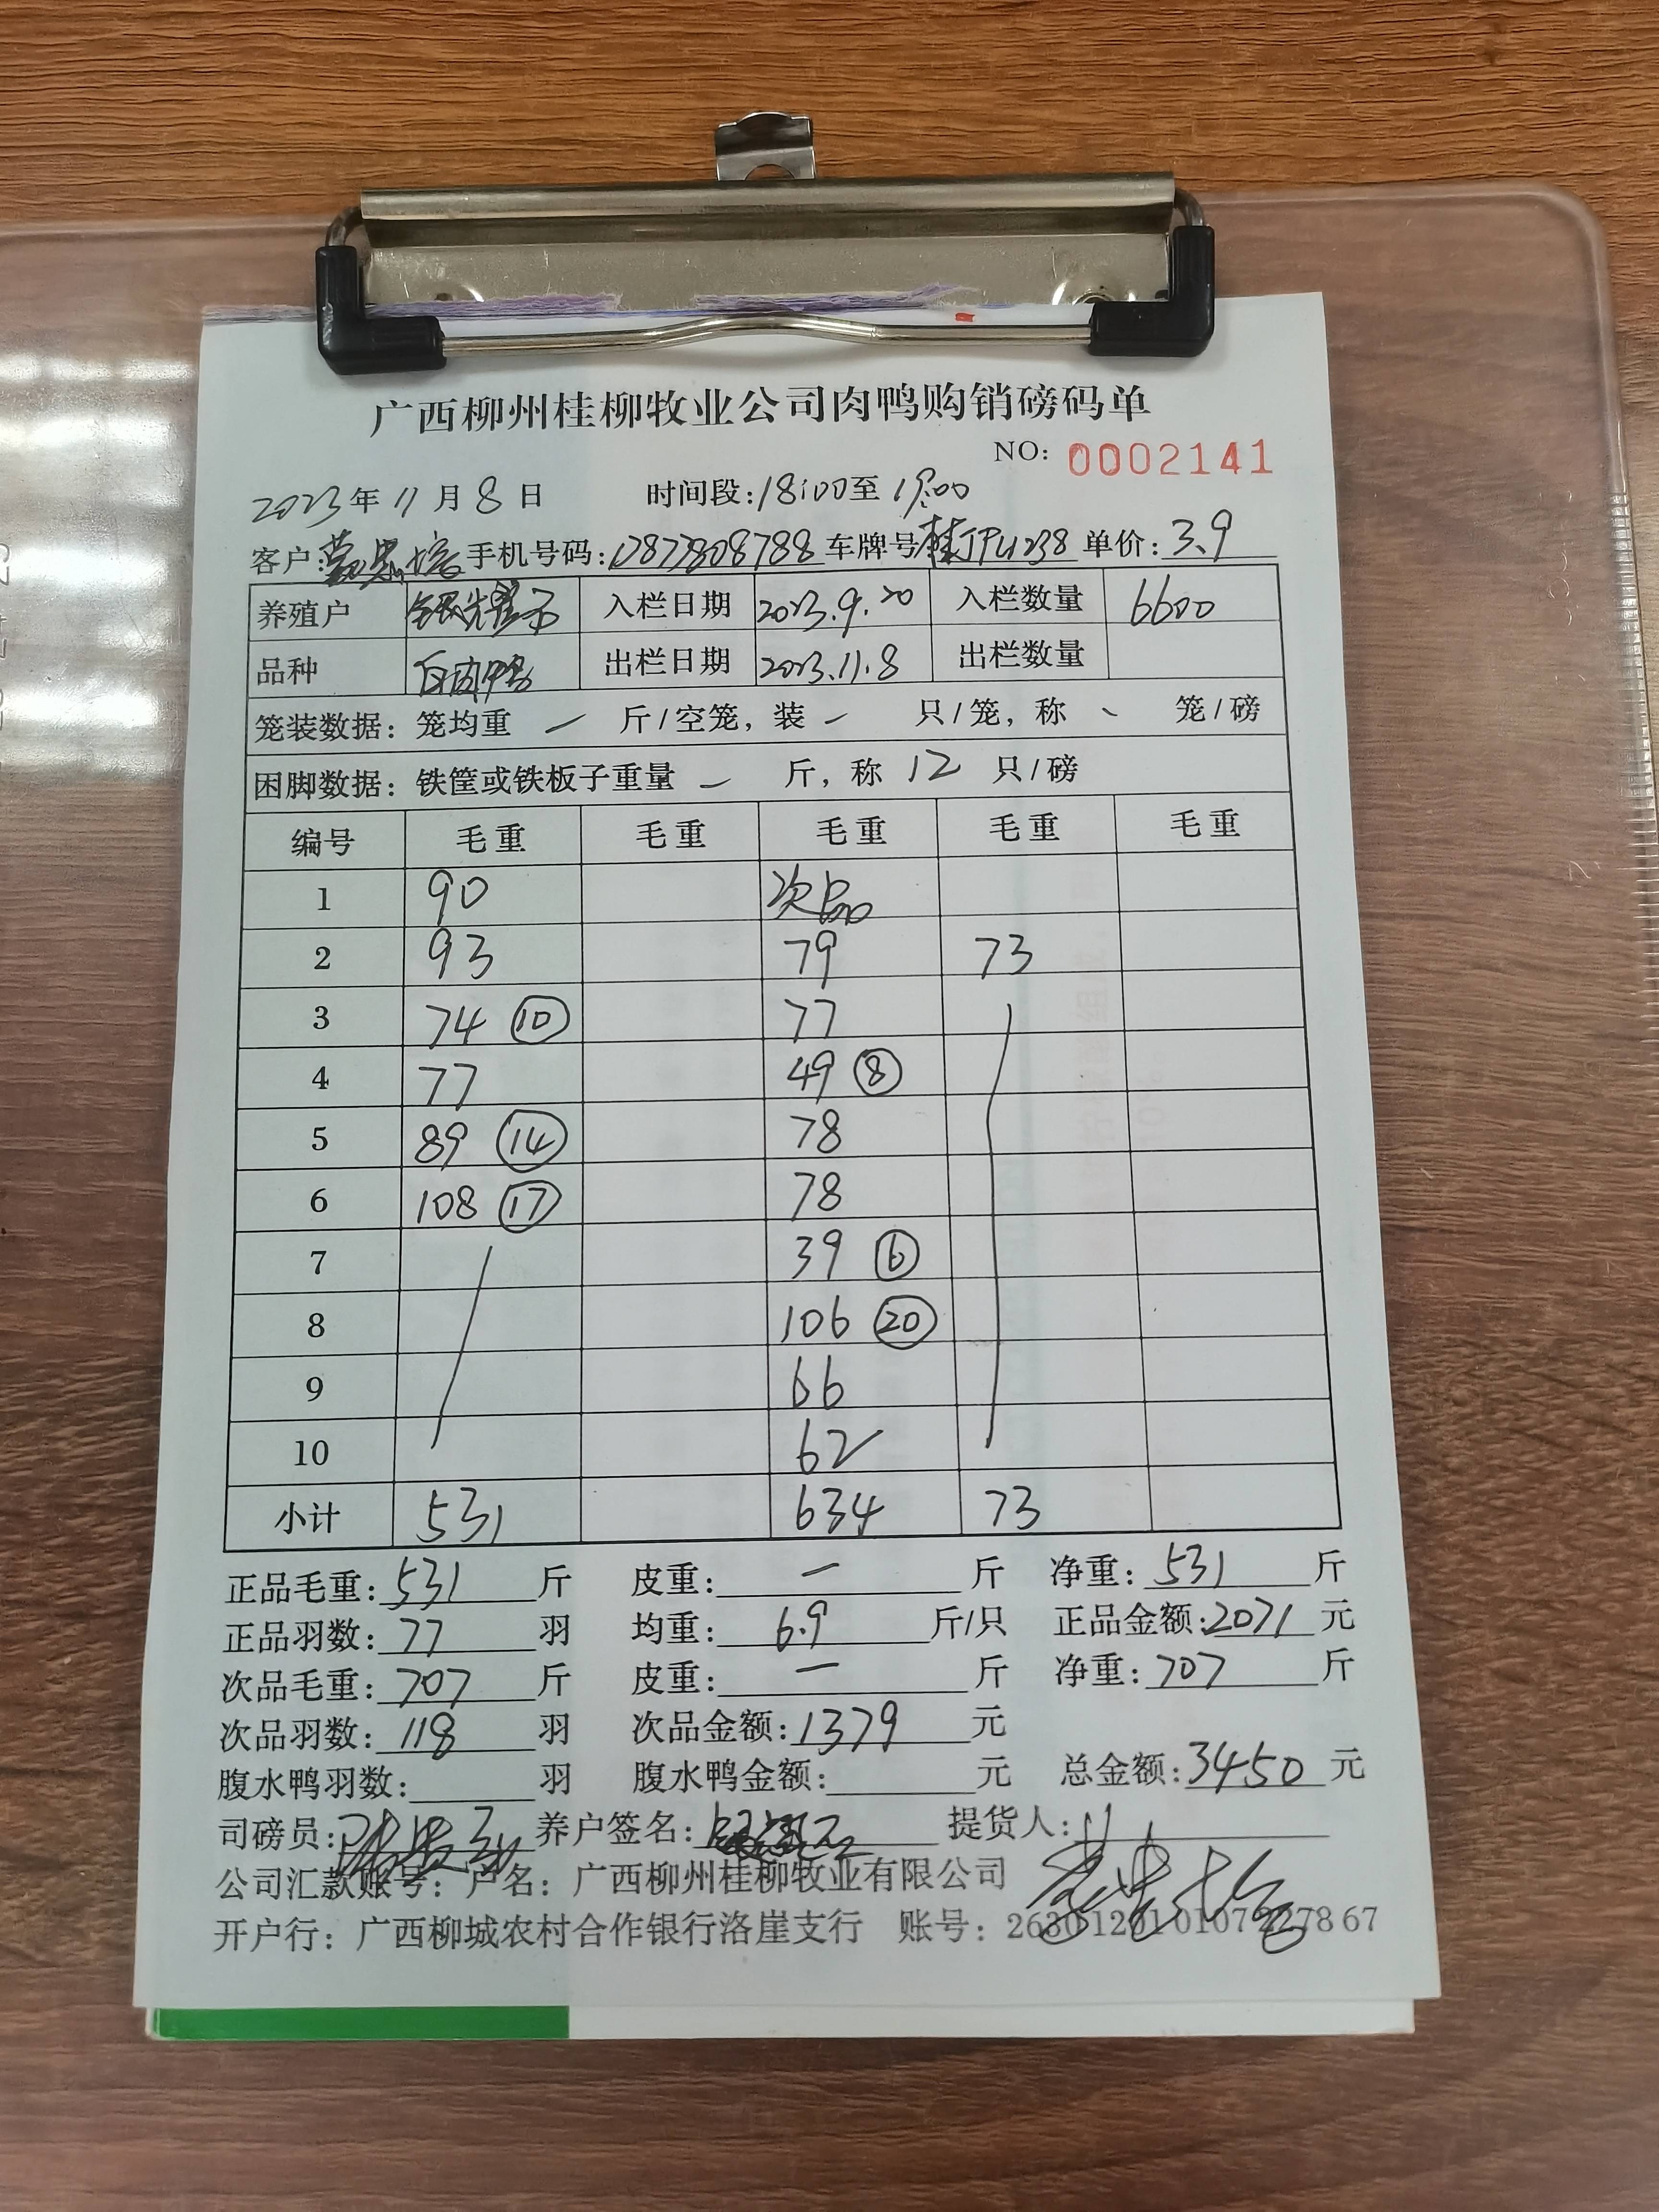 广西柳州桂柳牧业公司肉鸭购销磅码单
NO: 0002141
2023年11月8日 时间段:18:00至19:00
客户: 手机号码: 车牌号 单价:3.9
养殖户 入栏日期 2023.9.20 入栏数量 6600
品种 白肉鸭 出栏日期 2023.11.8 出栏数量
笼装数据: 笼均重 一 斤/空笼, 装 一 只/笼, 称 、 笼/磅
困脚数据: 铁筐或铁板子重量 一 斤, 称 12 只/磅
编号 毛重 毛重 毛重 毛重 毛重
1 90 次品
2 93 79 73
3 74 ⑩ 77
4 77 49 ⑧
5 89 ⑭ 78
6 108 ⑰ 78
7 39 ⑥
8 106 ⑳
9 66
10 62
小计 531 634 73
正品毛重:531斤 皮重:一斤 净重:531斤
正品羽数:77羽 均重:6.9斤/只 正品金额:2071元
次品毛重:707斤 皮重:一斤 净重:707斤
次品羽数:118羽 次品金额:1379元
腹水鸭羽数: 羽 腹水鸭金额: 元 总金额:3450元
司磅员: 养户签名: 提货人:
公司汇款账号: 户名: 广西柳州桂柳牧业有限公司
开户行: 广西柳城农村合作银行洛崖支行 账号: